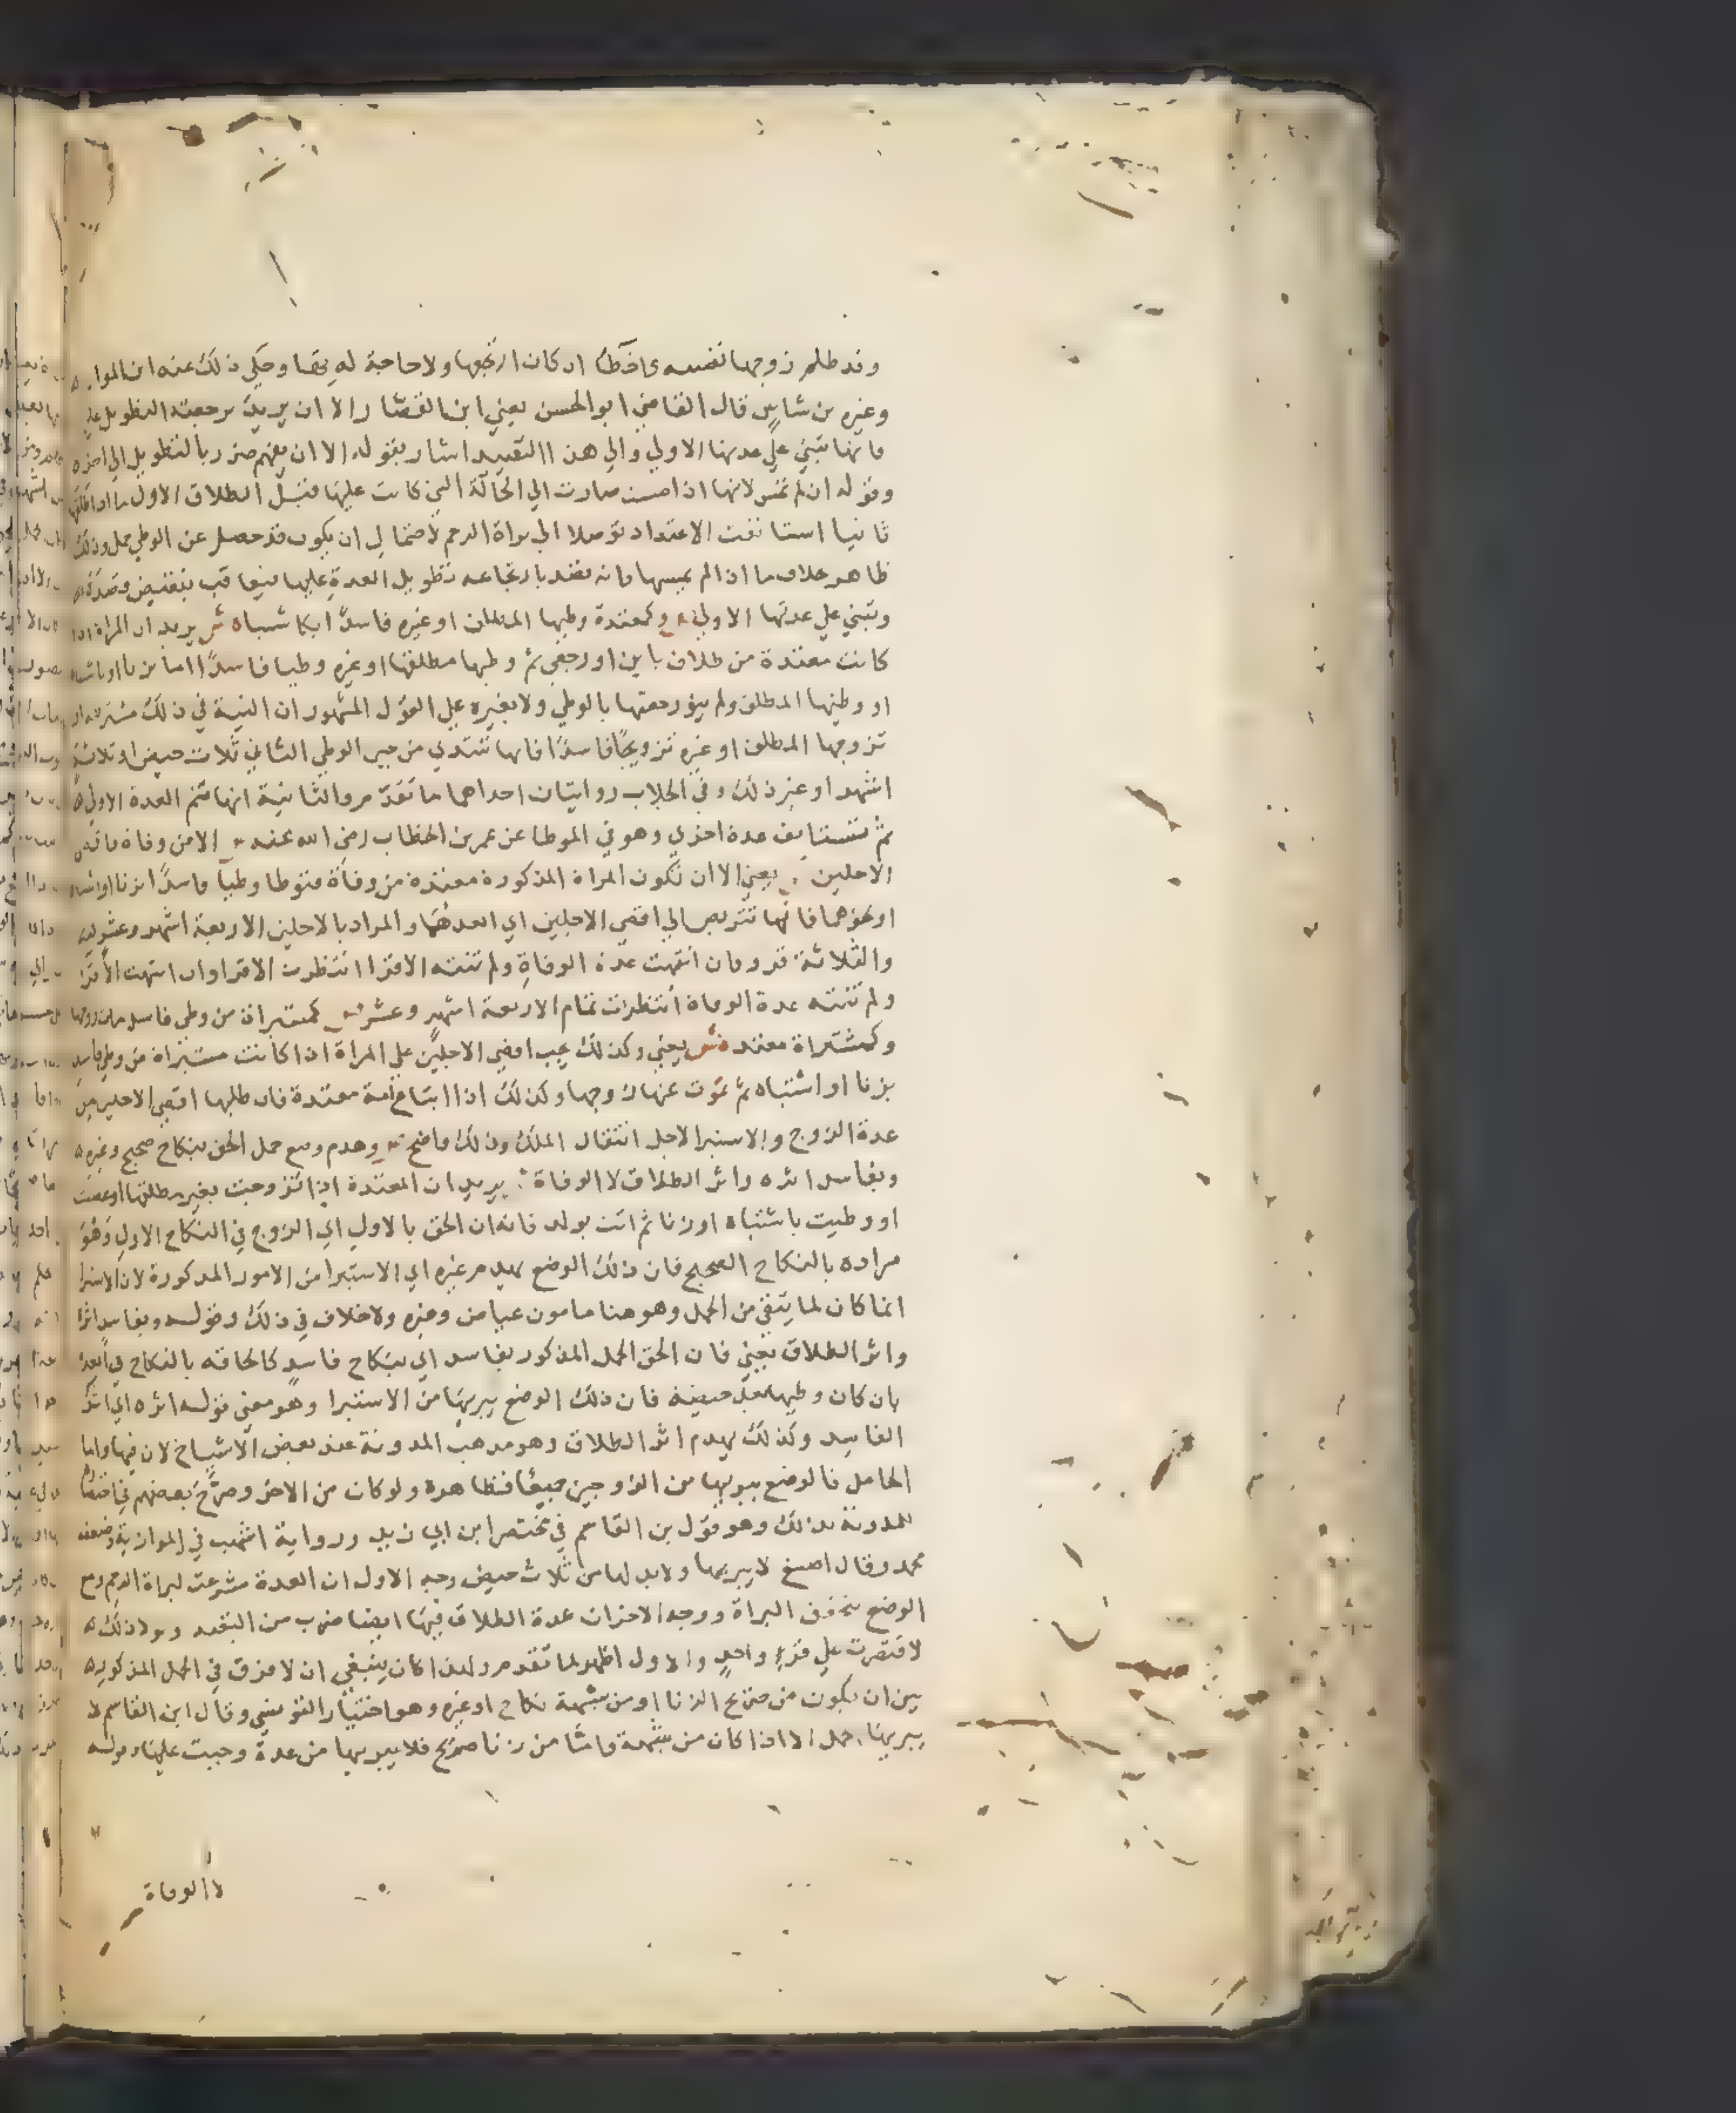 وقد ظلم زوجها نفسه واخطا اذ كان ارتجعها ولا حاجة له بها وحكي ذلك عنه ابن المواز
وغيره بن شاس قال القاضي ابو الحسن يعني ابن القصار الا ان يريد برجعته التطويل عليها
فانها تبني علي عدتها الاولي والي هذا التقييد اشار بقوله الا ان يفهم ضرر بالتطويل الي اخره
وقوله ان لم تمس لانها اذا مست صارت الي الحالة التي كانت عليها قبل الطلاق الاول فاذا طلقها
ثانيا استانفت الاعتداد توصلا الي براة الرحم لاحتمال ان يكون قد حصل عن الوطي حمل وذلك
ظاهر خلاف ما اذا لم يمسها فانه يقصد بارتجاعه تطويل العدة عليها فيعاقب بنقيض قصده
وتبني علي عدتها الاولي وكمعتدة وطيها المطلق او غيره فاسدا بكاشتباه ش يريد ان المراة اذا
كانت معتدة من طلاق باين او رجعي ثم وطيها مطلقها او غيره وطيا فاسدا اما بزنا او باشتباه
او وطيها المطلق ولم ينو رجعتها بالوطي ولا بغيره علي القول المشهور ان النية في ذلك مشترطة او
تزوجها المطلق او غيره تزويجا فاسدا فانها تبتدي من حين الوطي الثاني ثلاث حيض او ثلاثة
اشهر او غير ذلك وفي الجلاب روايتان احداهما ما تقدم والثانية انها تتم العدة الاولي
ثم تستانف عدة اخري وهو في الموطا عن عمر بن الخطاب رضي الله عنه الا من وفاة فاقصي
الاجلين يعني الا ان تكون المراة المذكورة معتدة من وفاة فتوطا وطيا فاسدا بزنا او اشتباه
او نحوهما فانها تتربص الي اقصي الاجلين اي ابعدهما والمراد بالاجلين الاربعة اشهر وعشر
والثلاثة قرو فان انتهت عدة الوفاة ولم تنته الاقرا انتظرت الاقرا وان انتهت الاقرا
ولم تنته عدة الوفاة انتظرت تمام الاربعة اشهر وعشر كمستبراة من وطي فاسد مات زوجها
وكمشتراة معتدة ش يعني وكذلك يجب اقصي الاجلين علي المراة اذا كانت مستبراة من وطي فاسد
بزنا او اشتباه ثم يموت عنها زوجها وكذلك اذا ابتاع امة معتدة فان عليها اقصي الاجلين من
عدة الزوج والاستبرا لاجل انتقال الملك وذلك واضح وهدم وضع حمل الحق بنكاح صحيح وغيره
وبفاسد اثره واثر الطلاق لا الوفاة يريد ان المعتدة اذا تزوجت بغير مطلقها او غصبت
او وطيت باشتباه او زنا ثم اتت بولد فانه ان الحق بالاول اي الزوج في النكاح الاول وهو
مراده بالنكاح الصحيح فان ذلك الوضع يهدم غيره اي الاستبرا من الامور المذكورة لان الاستبرا
انما كان لما يتقي من الحمل وهو هنا مامون عياض وغيره ولا خلاف في ذلك وقوله وبفاسد اثره
واثر الطلاق يعني فان الحق الحمل المذكور بفاسد اي بنكاح فاسد كالحاقه بالنكاح في العدة
بان كان وطيها بعد حيضة فان ذلك الوضع يبريها من الاستبرا وهو معني قوله اثره اي اثر
الفاسد وكذلك يهدم اثر الطلاق وهو مذهب المدونة عند بعض الاشياخ لان فيها واما
الحامل فالوضع يبريها من الزوجين جميعا فظاهره ولو كان من الاخر وصرح بعضهم في اختصار
المدونة بذلك وهو قول بن القاسم في مختصر ابن ابي زيد ورواية اشهب في الموازية وضعفه
محمد وقال اصبغ لا يبريها ولا بد لها من ثلاث حيض وجه الاول ان العدة شرعت لبراة الرحم ومع
الوضع تحقق البراة ووجه الاخر ان عدة الطلاق فيها ايضا ضرب من التعبد ولولا ذلك
لاقتصرت علي قرء واحد والاول اظهر لما تقدم ولهذا كان ينبغي ان لا فرق في الحمل المذكور
بين ان يكون من صريح الزنا او من شبهة نكاح او غيره وهو اختيار التونسي وقال ابن القاسم لا
يبريها حمل الا اذا كان من شبهة واما من زنا صريح فلا يبريها من عدة وجبت عليها وقوله
لا الوفاة